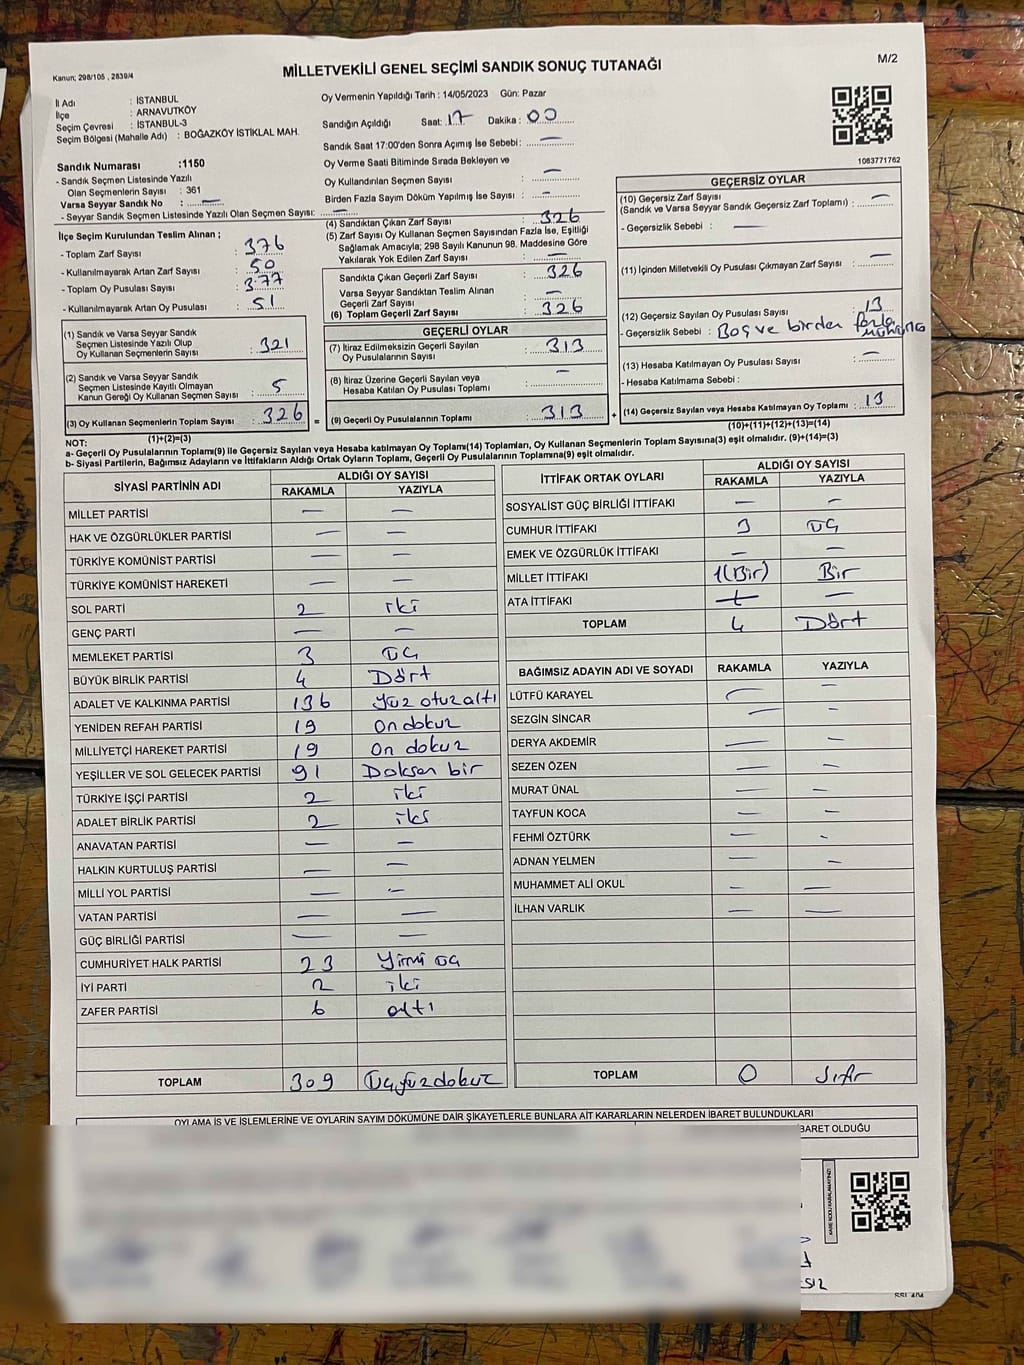 M/2
Kanun; 298/105 , 2839/4
MİLLETVEKİLİ GENEL SEÇİMİ SANDIK SONUÇ TUTANAĞI
İl Adı : İSTANBUL
İlçe : ARNAVUTKÖY
Seçim Çevresi : İSTANBUL-3
Seçim Bölgesi (Mahalle Adı) : BOĞAZKÖY İSTİKLAL MAH.
Sandık Numarası :1150
- Sandık Seçmen Listesinde Yazılı
Olan Seçmenlerin Sayısı : 361
Varsa Seyyar Sandık No : —
- Seyyar Sandık Seçmen Listesinde Yazılı Olan Seçmen Sayısı: —
İlçe Seçim Kurulundan Teslim Alınan ;
- Toplam Zarf Sayısı : 376
- Kullanılmayarak Artan Zarf Sayısı : 50
- Toplam Oy Pusulası Sayısı : 377
- Kullanılmayarak Artan Oy Pusulası : 51
(1) Sandık ve Varsa Seyyar Sandık
Seçmen Listesinde Yazılı Olup
Oy Kullanan Seçmenlerin Sayısı : 321
(2) Sandık ve Varsa Seyyar Sandık
Seçmen Listesinde Kayıtlı Olmayan
Kanun Gereği Oy Kullanan Seçmen Sayısı : 5
(3) Oy Kullanan Seçmenlerin Toplam Sayısı : 326 =
(1)+(2)=(3)
Oy Vermenin Yapıldığı Tarih : 14/05/2023 Gün: Pazar
Sandığın Açıldığı Saat: 17 Dakika : 00
Sandık Saat 17:00'den Sonra Açımış İse Sebebi: —
Oy Verme Saati Bitiminde Sırada Bekleyen ve
Oy Kullandırılan Seçmen Sayısı : —
Birden Fazla Sayım Döküm Yapılmış İse Sayısı : —
(4) Sandıktan Çıkan Zarf Sayısı : 326
(5) Zarf Sayısı Oy Kullanan Seçmen Sayısından Fazla İse, Eşitliği
Sağlamak Amacıyla; 298 Sayılı Kanunun 98. Maddesine Göre
Yakılarak Yok Edilen Zarf Sayısı : —
Sandıkta Çıkan Geçerli Zarf Sayısı : 326
Varsa Seyyar Sandıktan Teslim Alınan
Geçerli Zarf Sayısı : —
(6) Toplam Geçerli Zarf Sayısı : 326
GEÇERLİ OYLAR
(7) İtiraz Edilmeksizin Geçerli Sayılan
Oy Pusulalarının Sayısı : 313
(8) İtiraz Üzerine Geçerli Sayılan veya
Hesaba Katılan Oy Pusulası Toplamı : —
(9) Geçerli Oy Pusulalarının Toplamı : 313 +
1083771762
GEÇERSİZ OYLAR
(10) Geçersiz Zarf Sayısı
(Sandık ve Varsa Seyyar Sandık Geçersiz Zarf Toplamı) : —
- Geçersizlik Sebebi : —
(11) İçinden Milletvekili Oy Pusulası Çıkmayan Zarf Sayısı : —
(12) Geçersiz Sayılan Oy Pusulası Sayısı : 13
- Geçersizlik Sebebi : Boş ve birden fazla
(13) Hesaba Katılmayan Oy Pusulası Sayısı : —
- Hesaba Katılmama Sebebi :
(14) Geçersiz Sayılan veya Hesaba Katılmayan Oy Toplamı : 13
(10)+(11)+(12)+(13)=(14)
NOT:
a- Geçerli Oy Pusulalarının Toplamı(9) ile Geçersiz Sayılan veya Hesaba katılmayan Oy Toplamı(14) Toplamları, Oy Kullanan Seçmenlerin Toplam Sayısına(3) eşit olmalıdır. (9)+(14)=(3)
b- Siyasi Partilerin, Bağımsız Adayların ve İttifakların Aldığı Ortak Oyların Toplamı, Geçerli Oy Pusulalarının Toplamına(9) eşit olmalıdır.
SİYASİ PARTİNİN ADI ALDIĞI OY SAYISI
RAKAMLA YAZIYLA
MİLLET PARTİSİ — —
HAK VE ÖZGÜRLÜKLER PARTİSİ — —
TÜRKİYE KOMÜNİST PARTİSİ — —
TÜRKİYE KOMÜNİST HAREKETİ — —
SOL PARTİ 2 iki
GENÇ PARTİ — —
MEMLEKET PARTİSİ 3 Üç
BÜYÜK BİRLİK PARTİSİ 4 Dört
ADALET VE KALKINMA PARTİSİ 136 Yüz otuzaltı
YENİDEN REFAH PARTİSİ 19 On dokuz
MİLLİYETÇİ HAREKET PARTİSİ 19 On dokuz
YEŞİLLER VE SOL GELECEK PARTİSİ 91 Doksan bir
TÜRKİYE İŞÇİ PARTİSİ 2 iki
ADALET BİRLİK PARTİSİ 2 iki
ANAVATAN PARTİSİ — —
HALKIN KURTULUŞ PARTİSİ — —
MİLLİ YOL PARTİSİ — —
VATAN PARTİSİ — —
GÜÇ BİRLİĞİ PARTİSİ — —
CUMHURİYET HALK PARTİSİ 23 Yirmi üç
İYİ PARTİ 2 iki
ZAFER PARTİSİ 6 altı
TOPLAM 309 Üçyüzdokuz
İTTİFAK ORTAK OYLARI ALDIĞI OY SAYISI
RAKAMLA YAZIYLA
SOSYALİST GÜÇ BİRLİĞİ İTTİFAKI — —
CUMHUR İTTİFAKI 3 Üç
EMEK VE ÖZGÜRLÜK İTTİFAKI — —
MİLLET İTTİFAKI 1(Bir) Bir
ATA İTTİFAKI — —
TOPLAM 4 Dört
BAĞIMSIZ ADAYIN ADI VE SOYADI RAKAMLA YAZIYLA
LÜTFÜ KARAYEL — —
SEZGİN SİNCAR — —
DERYA AKDEMİR — —
SEZEN ÖZEN — —
MURAT ÜNAL — —
TAYFUN KOCA — —
FEHMİ ÖZTÜRK — —
ADNAN YELMEN — —
MUHAMMET ALİ OKUL — —
İLHAN VARLIK — —
TOPLAM 0 Sıfır
OYLAMA İŞ VE İŞLEMLERİNE VE OYLARIN SAYIM DÖKÜMÜNE DAİR ŞİKAYETLERLE BUNLARA AİT KARARLARIN NELERDEN İBARET BULUNDUKLARI
BARET OLDUĞU